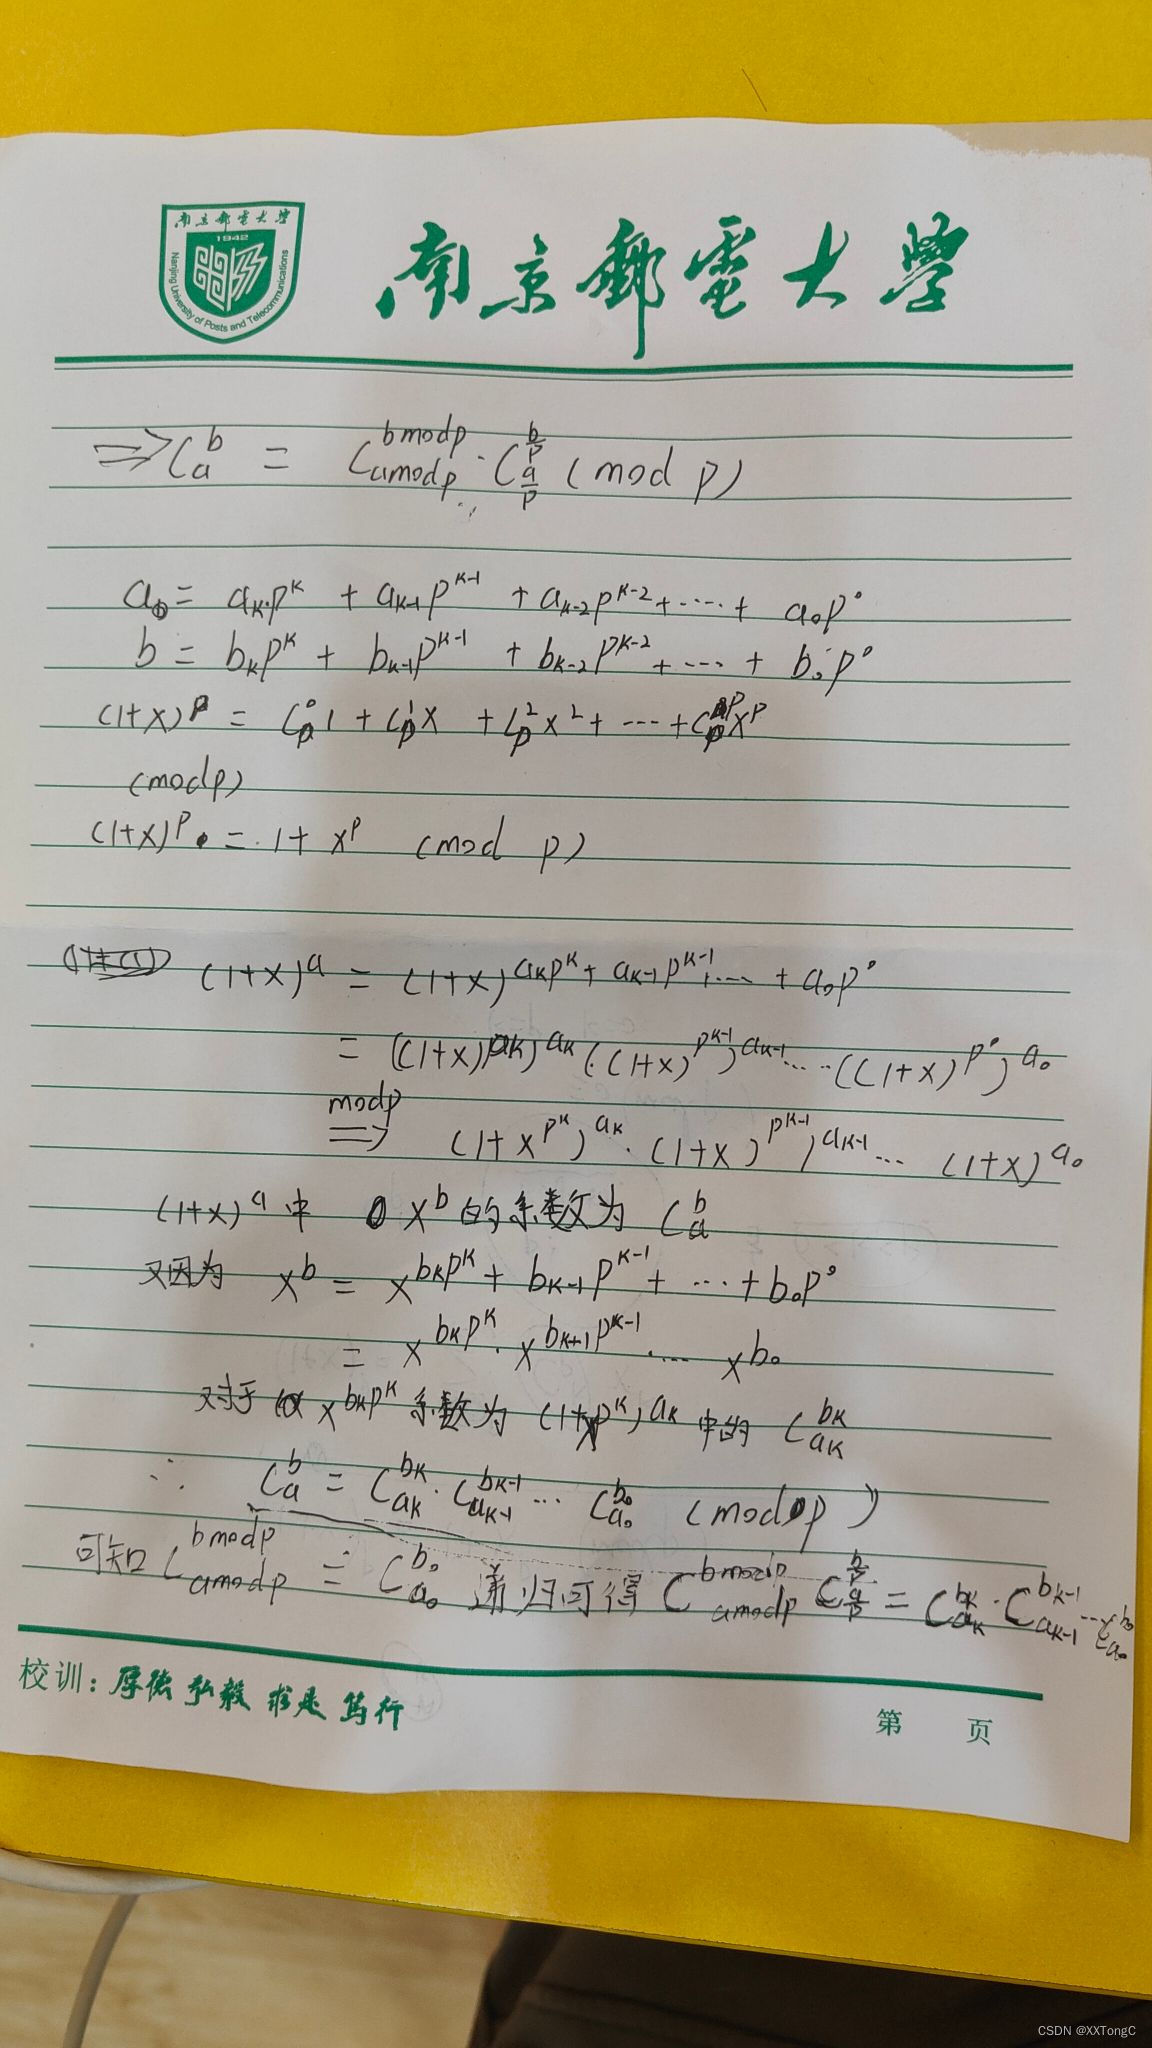 南京郵電大學
1942
Nanjing University of Posts and Telecommunications
南京郵電大學
⇒ C_a^b = C_{a mod p}^{b mod p} · C_{a/p}^{b/p} (mod p)
a = a_k p^k + a_{k-1} p^{k-1} + a_{k-2} p^{k-2} + ····· + a_0 p^0
b = b_k p^k + b_{k-1} p^{k-1} + b_{k-2} p^{k-2} + ··· + b_0 p^0
(1+x)^p = C_p^0 1 + C_p^1 x + C_p^2 x^2 + ··· + C_p^p x^p
(mod p)
(1+x)^p = 1 + x^p (mod p)
(1+x)^a = (1+x)^{a_k p^k + a_{k-1} p^{k-1} + ··· + a_0 p^0}
= ((1+x)^{p^k})^{a_k} · ((1+x)^{p^{k-1}})^{a_{k-1}} ····· ((1+x)^{p^0})^{a_0}
mod p
⇒ (1+x^{p^k})^{a_k} · (1+x)^{p^{k-1}})^{a_{k-1}} ··· (1+x)^{a_0}
(1+x)^a 中 x^b 的系数为 C_a^b
又因为 x^b = x^{b_k p^k + b_{k-1} p^{k-1} + ··· + b_0 p^0}
= x^{b_k p^k} · x^{b_{k+1} p^{k-1}} ····· x^{b_0}
对于 x^{b_k p^k} 系数为 (1+x^{p^k})^{a_k} 中的 C_{a_k}^{b_k}
∴ C_a^b = C_{a_k}^{b_k} · C_{a_{k-1}}^{b_{k-1}} ··· C_{a_0}^{b_0} (mod p)
可知 C_{a mod p}^{b mod p} = C_{a_0}^{b_0} 递归可得 C_{a mod p}^{b mod p} C_{a/p}^{b/p} = C_{a_k}^{b_k} · C_{a_{k-1}}^{b_{k-1}} ··· C_{a_0}^{b_0}
校训：厚德 弘毅 求是 笃行
第 页
CSDN @XXTongC